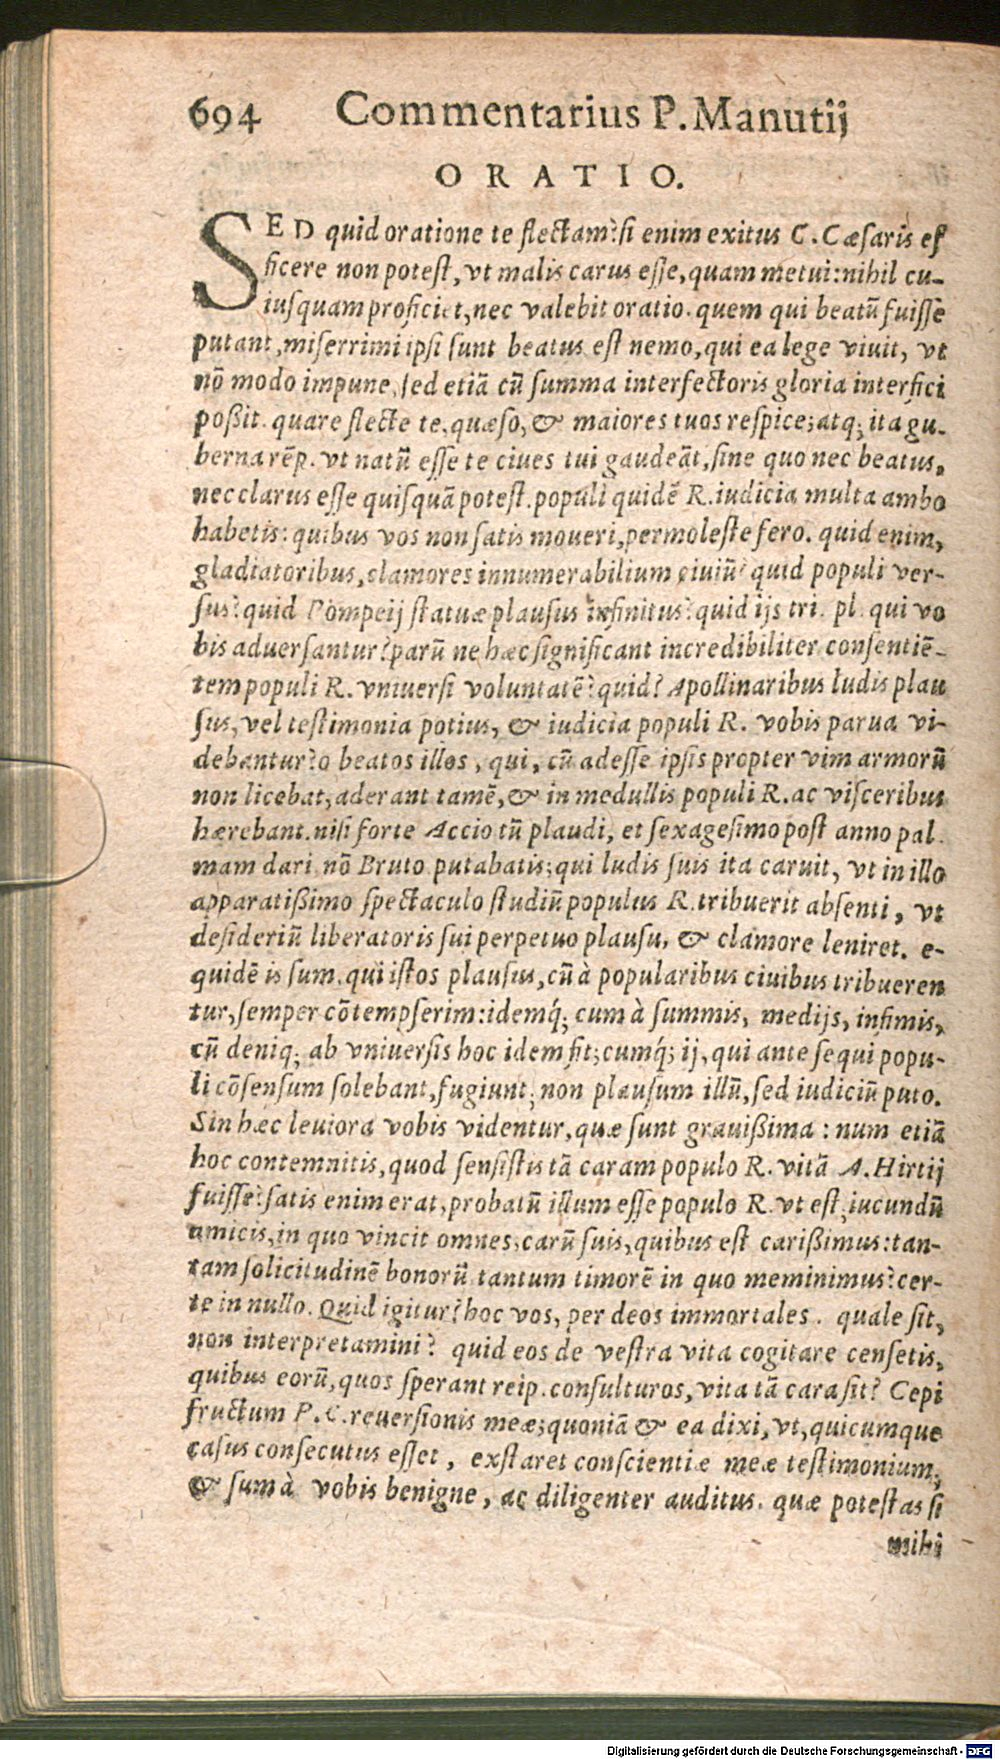 694 Commentarius P. Manutij
ORATIO.
SED quid oratione te flectam? si enim exitus C. Cæsaris ef
ficere non potest, vt malis carus esse, quam metui: nihil cu-
iusquam proficiet, nec valebit oratio. quem qui beatũ fuisse
putant, miserrimi ipsi sunt beatus est nemo, qui ea lege viuit, vt
nõ modo impune, sed etiã cũ summa interfectoris gloria interfici
poßit. quare flecte te, quæso, & maiores tuos respice; atq; ita gu-
berna rẽp. vt natũ esse te ciues tui gaudeãt, sine quo nec beatus,
nec clarus esse quisquã potest. populi quidẽ R. iudicia multa ambo
habetis: quibus vos non satis moueri, permoleste fero. quid enim,
gladiatoribus, clamores innumerabilium ciuiũ? quid populi ver-
sus? quid Pompeij statuæ plausus infinitus? quid ijs tri. pl. qui vo
bis aduersantur? parũ ne hæc significant incredibiliter consentiẽ-
tem populi R. vniuersi voluntatẽ? quid? Apollinaribus ludis plau
sus, vel testimonia potius, & iudicia populi R. vobis parua vi-
debantur? o beatos illos, qui, cũ adesse ipsis propter vim armorũ
non licebat, aderant tamẽ, & in medullis populi R. ac visceribus
hærebant. nisi forte Accio tũ plaudi, et sexagesimo post anno pal
mam dari nõ Bruto putabatis; qui ludis suis ita caruit, vt in illo
apparatißimo spectaculo studiũ populus R. tribuerit absenti, vt
desideriũ liberatoris sui perpetuo plausu, & clamore leniret. e-
quidẽ is sum. qui istos plausus, cũ à popularibus ciuibus tribueren
tur, semper cõtempserim: idemq́; cum à summis, medijs, infimis,
cũ deniq; ab vniuersis hoc idem fit; cumq́; ij, qui ante sequi popu-
li cõsensum solebant, fugiunt; non plausum illũ, sed iudiciũ puto.
Sin hæc leuiora vobis videntur, quæ sunt grauißima: num etiã
hoc contemnitis, quod sensistis tã caram populo R. vitã A. Hirtij
fuisse? satis enim erat, probatũ illum esse populo R. vt est; iucundũ
amicis, in quo vincit omnes; carũ suis, quibus est carißimus: tan-
tam solicitudinẽ bonorũ tantum timorẽ in quo meminimus? cer-
te in nullo. Quid igitur? hoc vos, per deos immortales. quale sit,
non interpretamini? quid eos de vestra vita cogitare censetis,
quibus eorũ, quos sperant reip. consulturos, vita tã cara sit? Cepi
fructum P. C. reuersionis meæ; quoniã & ea dixi, vt, quicumque
casus consecutus esset, exstaret conscientiæ meæ testimonium;
& sum à vobis benigne, ac diligenter auditus. quæ potestas si
mihi
Digitalisierung gefördert durch die Deutsche Forschungsgemeinschaft - DFG